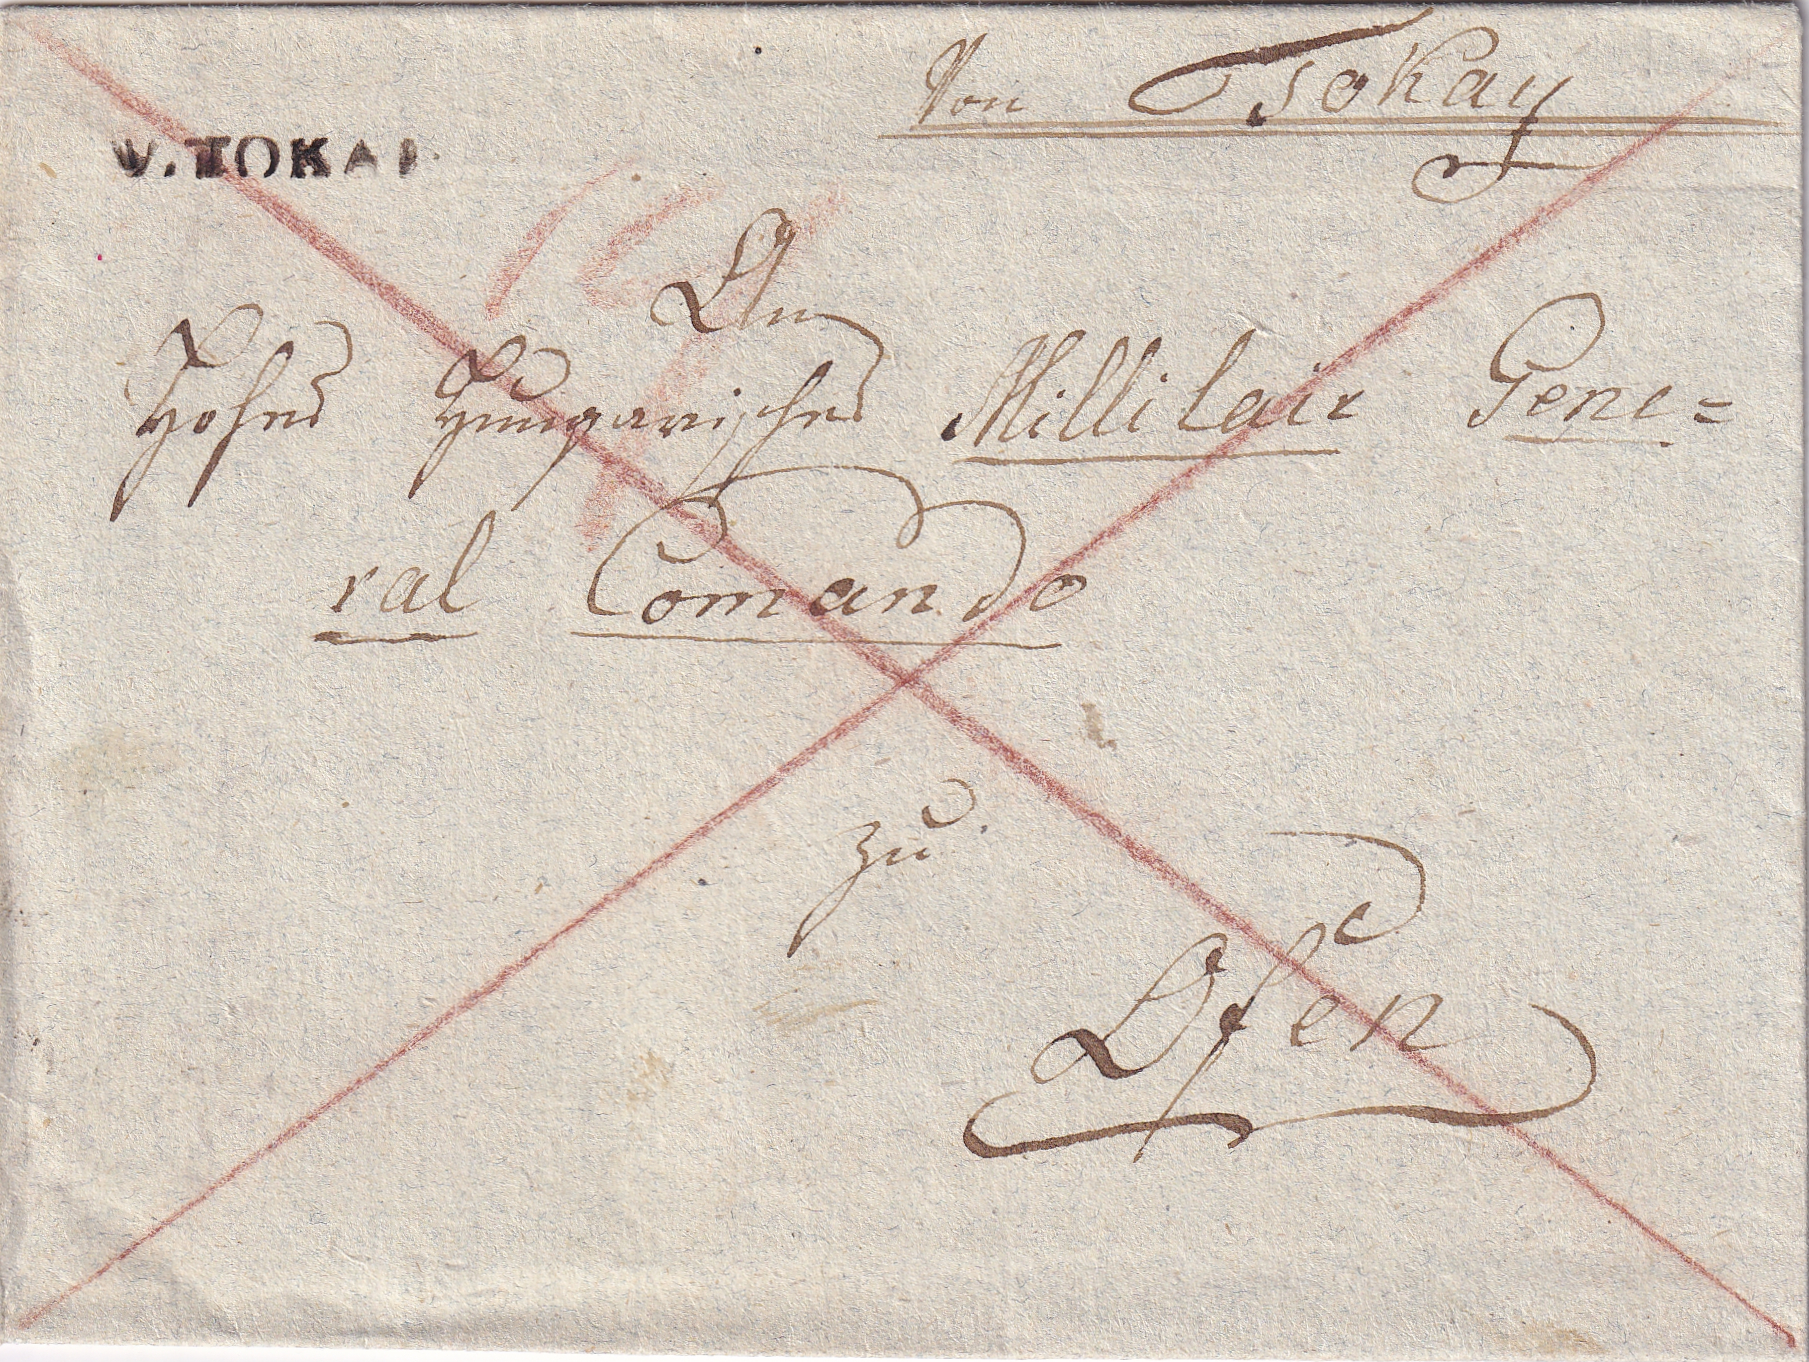 Von Tsokay
V. TOKAI
An
Hohes Hungarisches Millitair Gene=
ral Comando
zu
Ofen